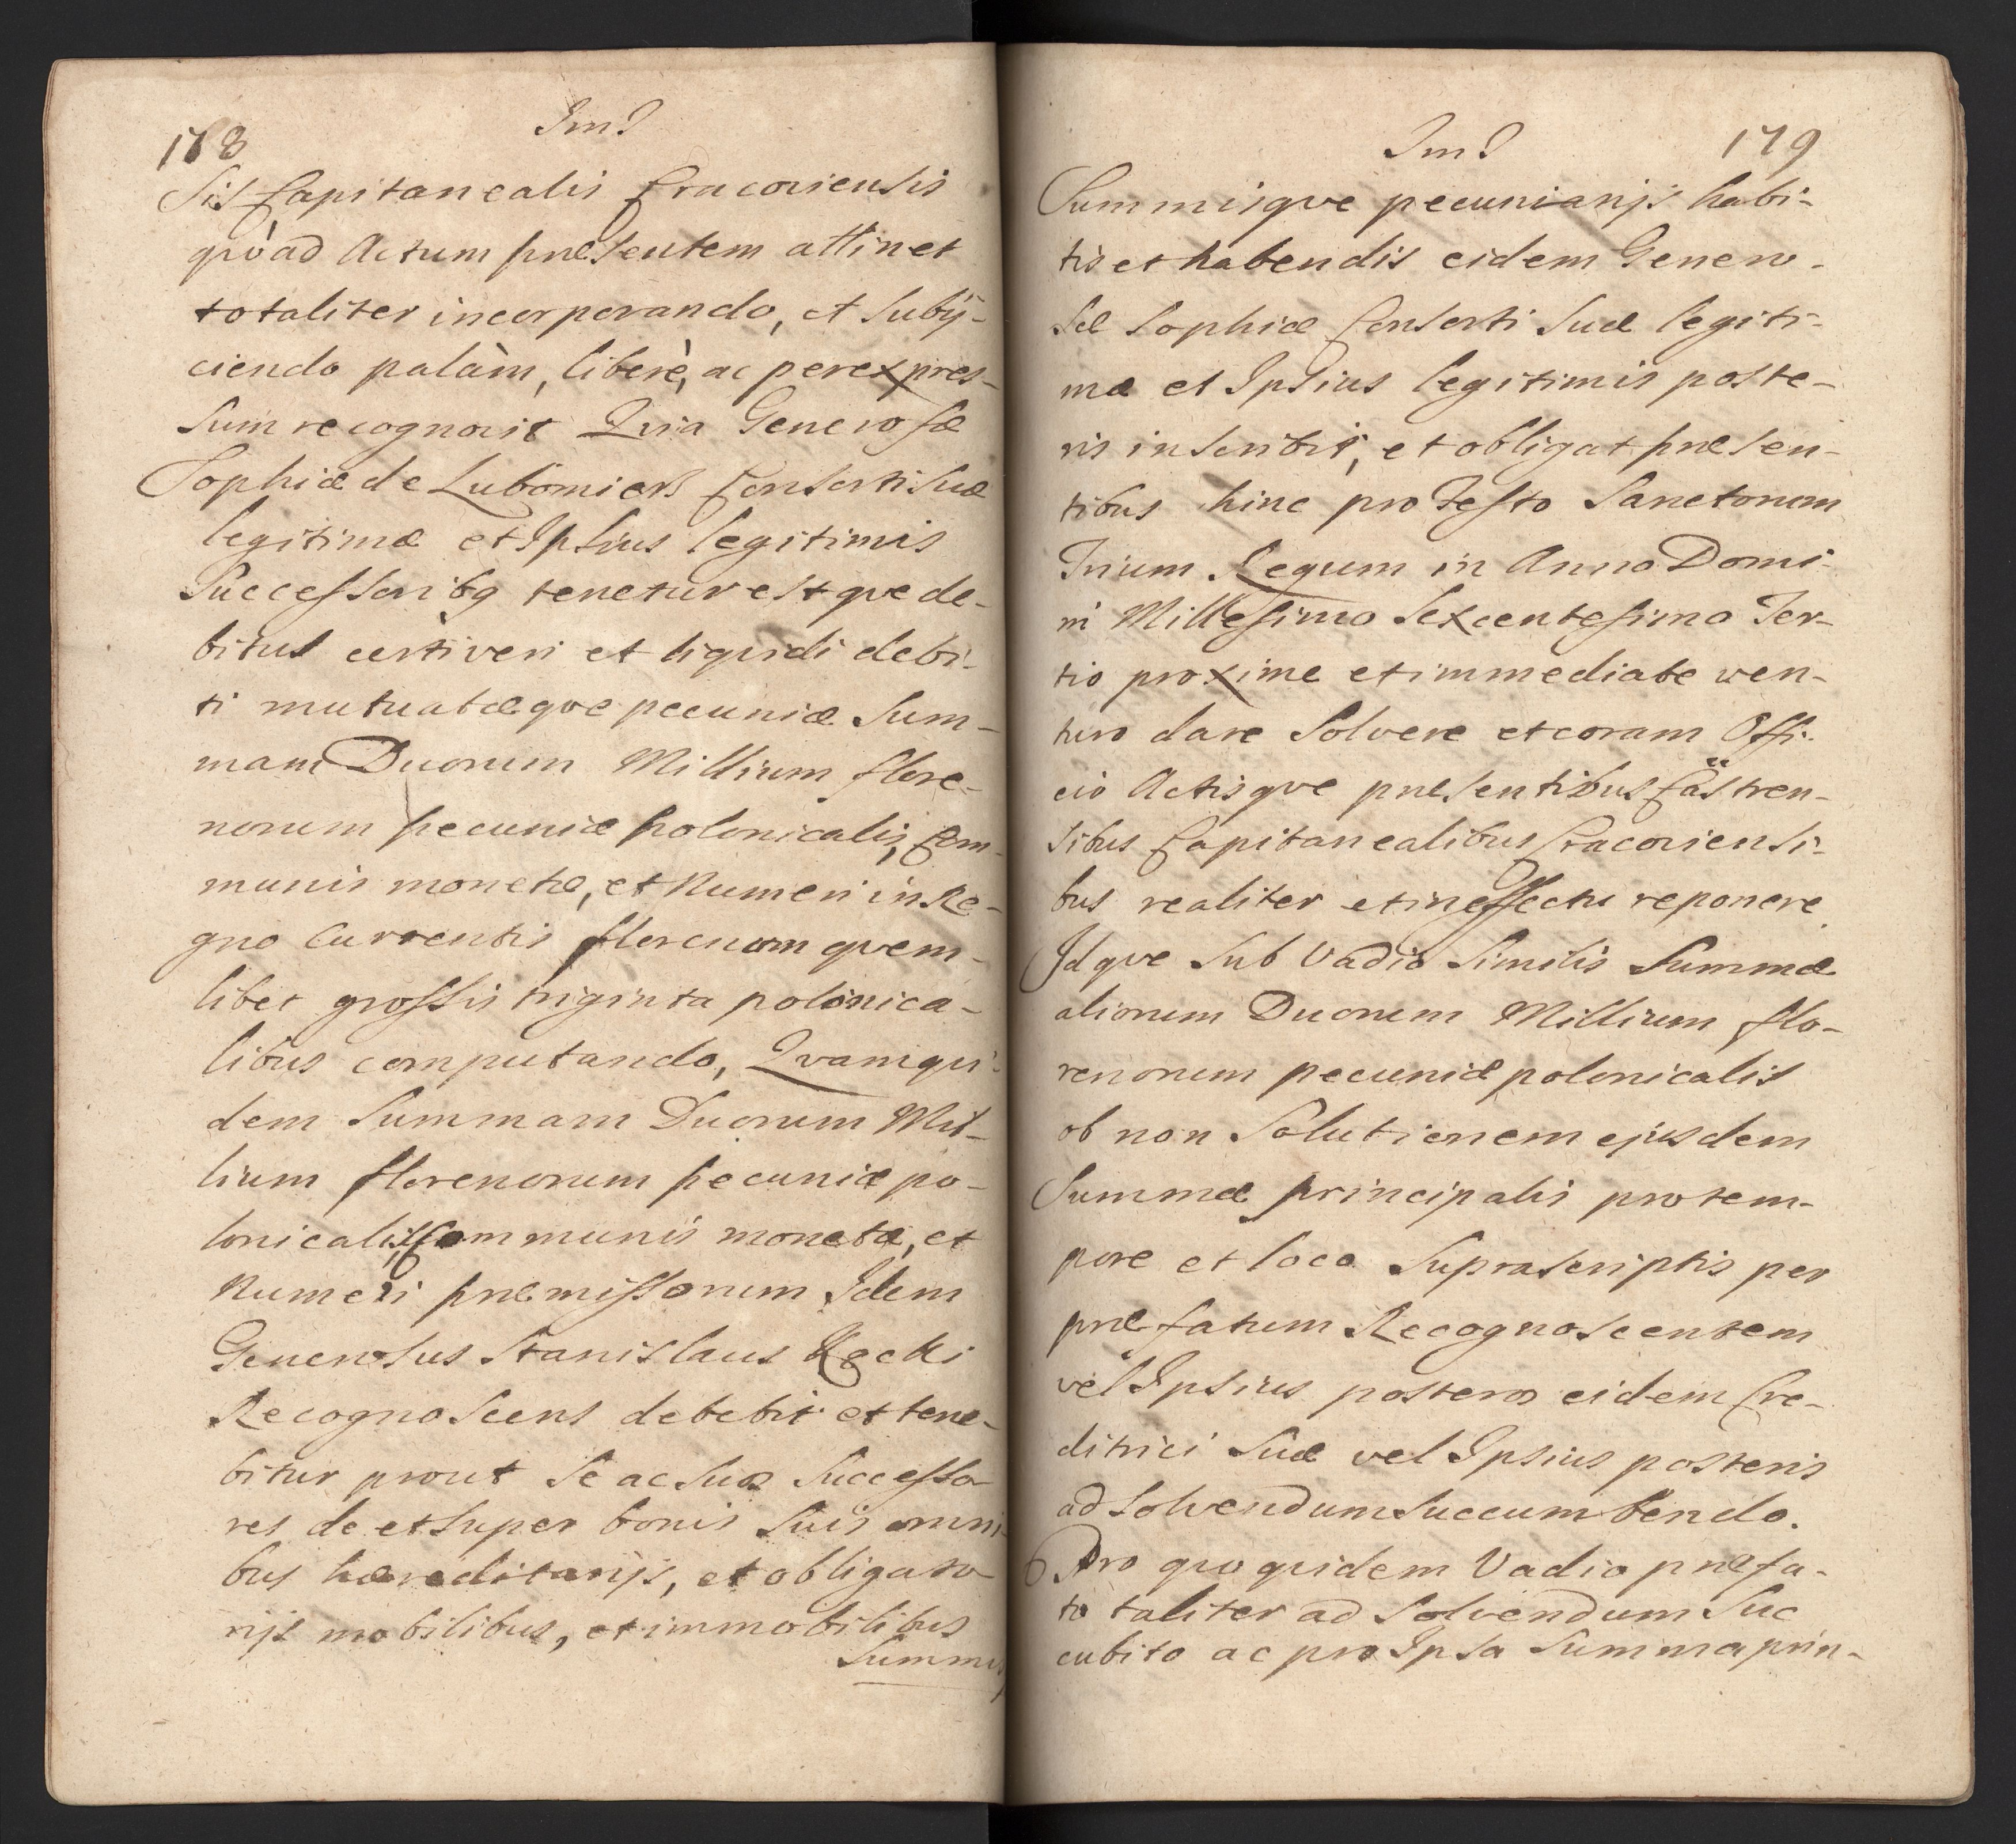 178
Jm J
sis Capitanealis Cracoviensis
qvòad Actum præsentem attinet
totaliter incorporando, et Subij-
ciendo palàm, liberè, ac per expres-
sum recognovit Qvia Generosæ
Sophiæ de Lubomierz Consorti suæ
legitimæ et Ipsius legitimis
Successoribq tenetur estqve de-
bitus certi veri et liqvidi debi-
ti mutuatæqve pecuniæ Sum-
mam Duorum Millium flore-
norum pecuniæ polonicalis, Com-
munis monetæ, et Numeri in Re-
gno Currentis florenum qvem-
libet grossis triginta polonica-
libus computando, Qvamqvi-
dem Summam Duorum Mil-
lium florenorum pecuniæ po-
lonicalis, Communis monetæ, et
Numeri præmissorum Idem
Generosus Stanislaus
Recognoscens debebit et tene-
bitur prout Se ac Suos Successo-
res de et Super bonis Suis omni-
bus hæreditarijs, et obligato-
rijs mobilibus, et immobilibus
Summis
Jm J
179
Summisqve pecuniarijs habi-
tis et habendis eidem Genero-
sæ Sophiæ Consorti Suæ legiti-
mæ et Ipsius legitimis poste-
ris inscribit, et obligat præsen-
tibus hinc pro Festo Sanctorum
Trium Regum in Anno Domi-
ni Millesimo Sexcentesimo Ter-
tio proxime et immediate ven-
turo dare Solvere et coram Offi-
cio Actisqve præsentibus Castren-
sibus Capitanealibus Cracoviensi-
bus realiter et in effectu reponere
Idqve Sub Vadio Similis Summæ
aliorum Duorum Millium flo-
renorum pecuniæ polonicalis
ob non Solutionem ejusdem
Summæ principalis pro tem-
pore et loco Suprascriptis per
præfatum Recognoscentem
vel Ipsius posteros eidem Cre-
ditrici Suæ vel Ipsius posteris
ad Solvendum Succumbendo.
Pro qvo qvidem Vadio præfa-
to taliter ad Solvendum Suc
cubito ac pro Ipsa Summa prin-